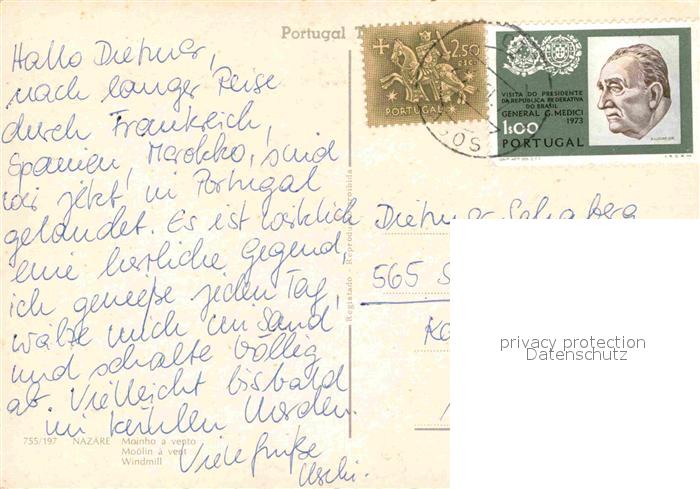 Hallo Dietmar,
nach langer Reise
durch Frankreich,
Spanien, Marokko, sind
wir jetzt in Portugal
gelandet. Es ist wirklich
eine herrliche Gegend,
ich genieße jeden Tag,
wälze mich im Sand
und schalte völlig
ab. Vielleicht bis bald
im kühlen Norden.
Viele Grüße
Uschi.
755/197 NAZARÉ Moinho a vento
Moûlin à vent
Windmill
Portugal T
Registado - Reprodução proibida
2.50
ESC.
PORTUGAL
VISITA DO PRESIDENTE
DA REPÚBLICA FEDERATIVA
DO BRASIL
GENERAL G. MEDICI
1973
1$00
PORTUGAL
Dietmar
565 S
privacy protection
Datenschutz